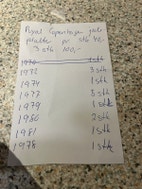 Royal Copenhagen jule
platter pr stk 40,-
3 stk 100,-
1972 3 stk
1974 1 stk
1973 8 stk
1979 1 stk
1980 2 stk
1981 1 stk
1978 1 stk